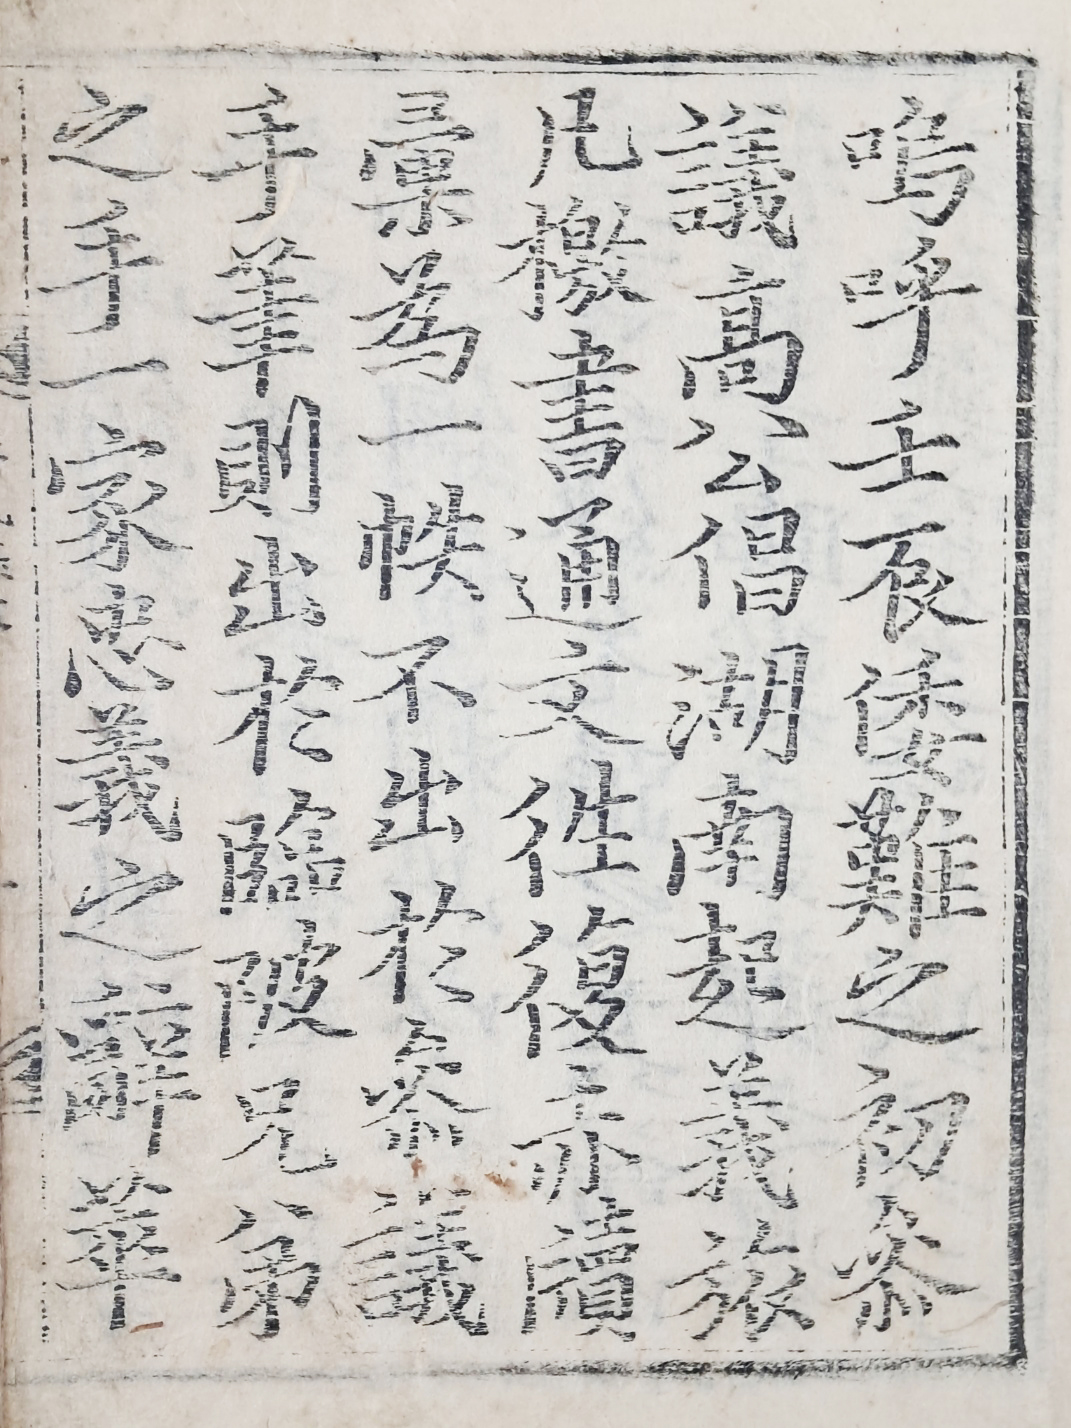 嗚呼壬辰倭難之初叅
議高公倡湖南起義旅
凡檄書通文往復亦積
稾爲一帙不出於叅議
手筆則出於臨陂兄弟
之手一家忠義之辭華